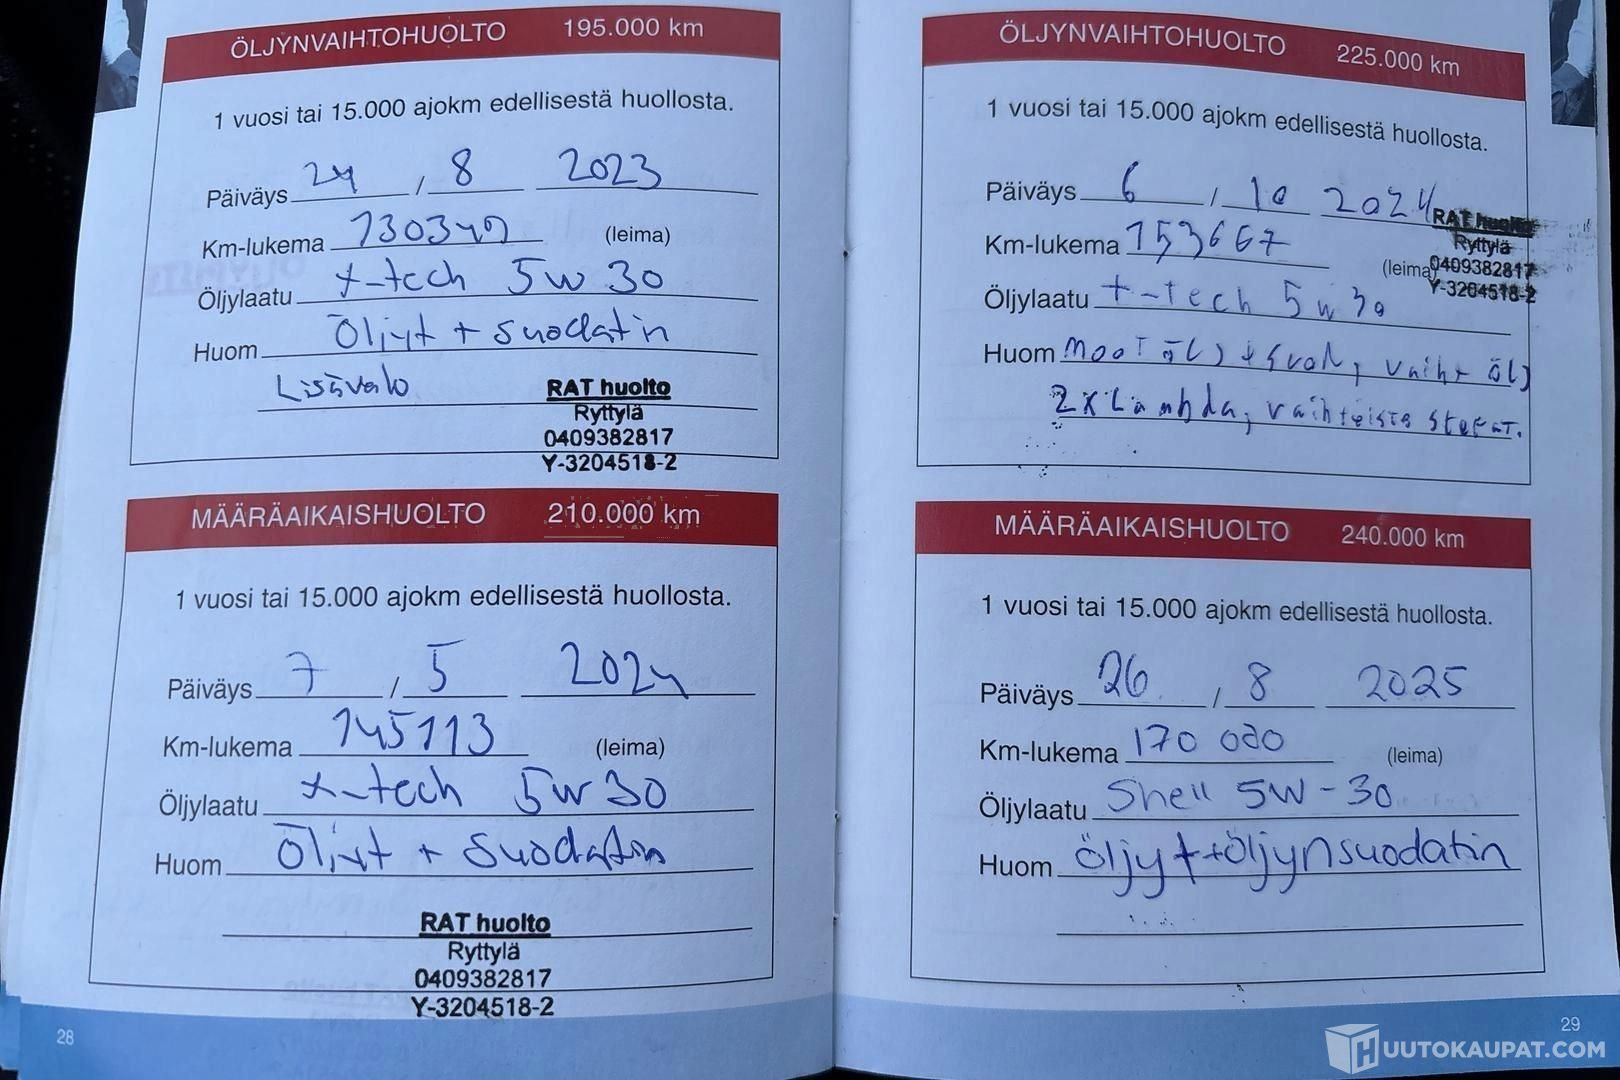 ÖLJYNVAIHTOHUOLTO 195.000 km
1 vuosi tai 15.000 ajokm edellisestä huollosta.
Päiväys 24 / 8 2023
Km-lukema 130349 (leima)
Öljylaatu x-tech 5w30
Huom Öljyt + suodatin
Lisävalo
RAT huolto
Ryttylä
0409382817
Y-3204518-2
MÄÄRÄAIKAISHUOLTO 210.000 km
1 vuosi tai 15.000 ajokm edellisestä huollosta.
Päiväys 7 / 5 2024
Km-lukema 145113 (leima)
Öljylaatu x-tech 5w30
Huom Öljyt + suodatin
RAT huolto
Ryttylä
0409382817
Y-3204518-2
28
ÖLJYNVAIHTOHUOLTO 225.000 km
1 vuosi tai 15.000 ajokm edellisestä huollosta.
Päiväys 6 / 10 2024
Km-lukema 153667 (leima)
RAT huolto
Ryttylä
0409382817
Y-3204518-2
Öljylaatu x-tech 5w30
Huom moot ölj + suod, vaiht ölj
2x Lambda, vaihteisto
MÄÄRÄAIKAISHUOLTO 240.000 km
1 vuosi tai 15.000 ajokm edellisestä huollosta.
Päiväys 26 / 8 2025
Km-lukema 170 000 (leima)
Öljylaatu Shell 5W-30
Huom öljyt+öljynsuodatin
29
HUUTOKAUPAT.COM